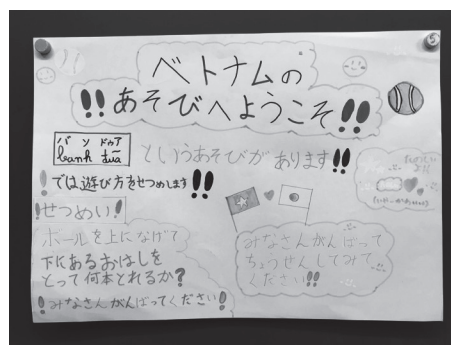 ベトナムの
!!あそびへようこそ!!
バン ドゥア
banh đua
というあそびがあります!!
!では遊び方をせつめいします!!
!せつめい!
ボールを上になげて
下にあるおはしを
とって何本とれるか?
!みなさんがんばってください!
みなさんがんばって
ちょうせんしてみて
ください!!